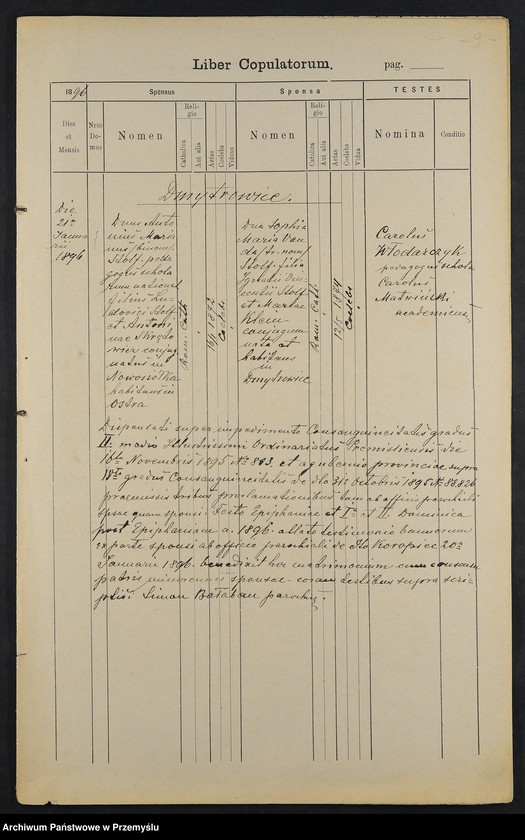 Liber Copulatorum.
pag.
1896
Sponsus
Sponsa
TESTES
Dies
et
Mensis
Nrus
Do-
mus
Nomen
Reli-
gio
Catholica
Aut alia
Aetas
Coelebs
Viduus
Nomen
Reli-
gio
Catolica
Aut alia
Aetas
Coelebs
Vidua
Nomina
Conditio
Dmytrowice.
Die
21a
Janua
rii
1896
Dnus Anto
nius Maria
nus /binom/
Stolf. peda
gogus schola
rum national
filius Lu-
dovici Stolf
et Antoni
nae
conjug
natus in
Nowosiółka
habitans in
Ostra
Rom. Cath.
1872
Coelebs
Dna Sophia
Maria Van
da /tr. nom/
Stolf. filia
Ignatii Vin-
centii Stolf
et Mariae
Klein
conjugum
nata et
habitans
in
Dmytrowic
Rom. Cath.
1874
Coelebs
Carolus
Włodarczyk
pedagogus scholae
Carolus
academicus
Dispensati super impedimento Consanguineitatis gradus
II. modo Illustrissimi Ordinariatus Premisliensis die
16ta Novembris 1895 № 803. et a gubernio provinciae supra
gradus Consanguineitatis de dto 31a Octobris 1895 № 88.826
praemissis tribus proclamationibus tam ab officio parochiali
sponsae quam sponsi. Festo Epiphaniae et Ia et II. Dominica
post Epiphaniam a. 1896. allato testimonio bannorum
ex parte sponsi ab officio parochiali de Koropiec 20a
Januarii 1896. benedixit hoc matrimonium cum consensu
patris minorennis sponsae coram testibus supra scri-
ptis. Simon Bałaban parochus.
Archiwum Państwowe w Przemyślu